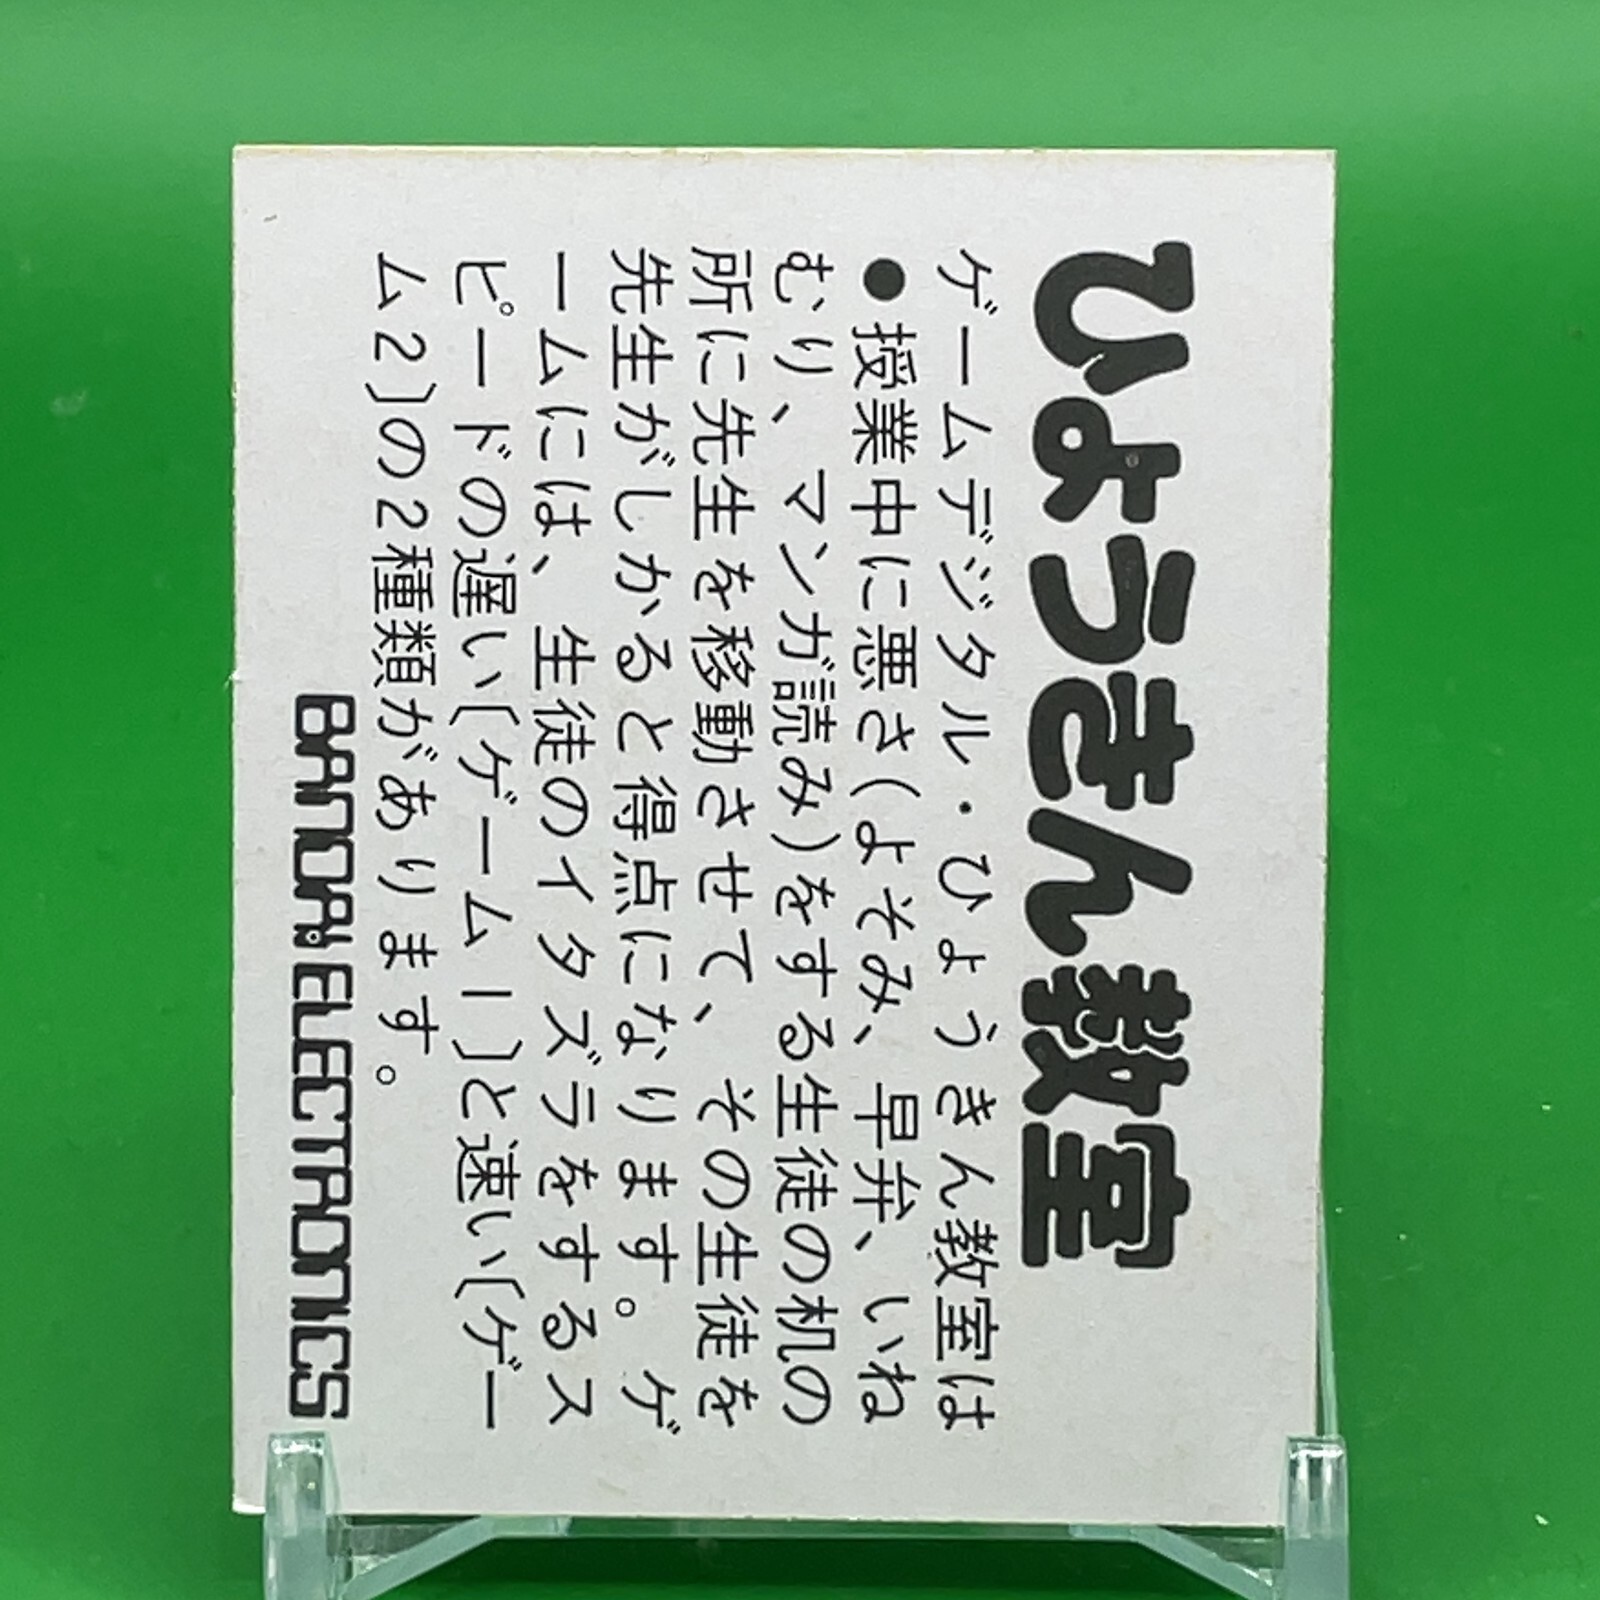 ひょうきん教室
ゲームデジタル・ひょうきん教室は
●授業中に悪さ(よそみ、早弁、いね
むり、マンガ読み)をする生徒の机の
所に先生を移動させて、その生徒を
先生がしかると得点になります。ゲ
ームには、生徒のイタズラをするス
ピードの遅い〔ゲーム1〕と速い〔ゲー
ム2〕の2種類があります。
BANDAI ELECTRONICS